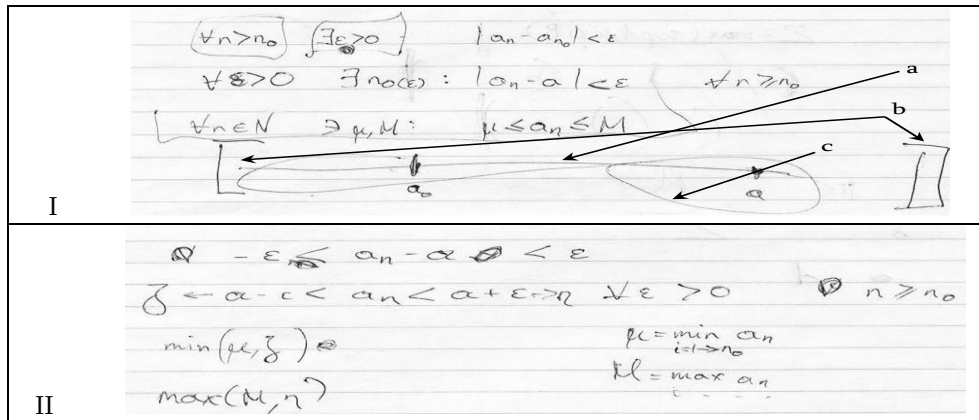 ∀n>n₀ ∃ε>0 |aₙ-aₙ₀|<ε
∀ε>0 ∃n₀(ε): |aₙ-a|<ε ∀n≥n₀
a
∀n∈N ∃μ,M: μ≤aₙ≤M
b
c
a₀ a
I
-ε≤ aₙ-a <ε
ζ ← a-ε< aₙ<a+ε→η ∀ε>0 n≥n₀
min(μ,ζ) μ=min aₙ
i=1→n₀
max(M,η) M=max aₙ
i....
II